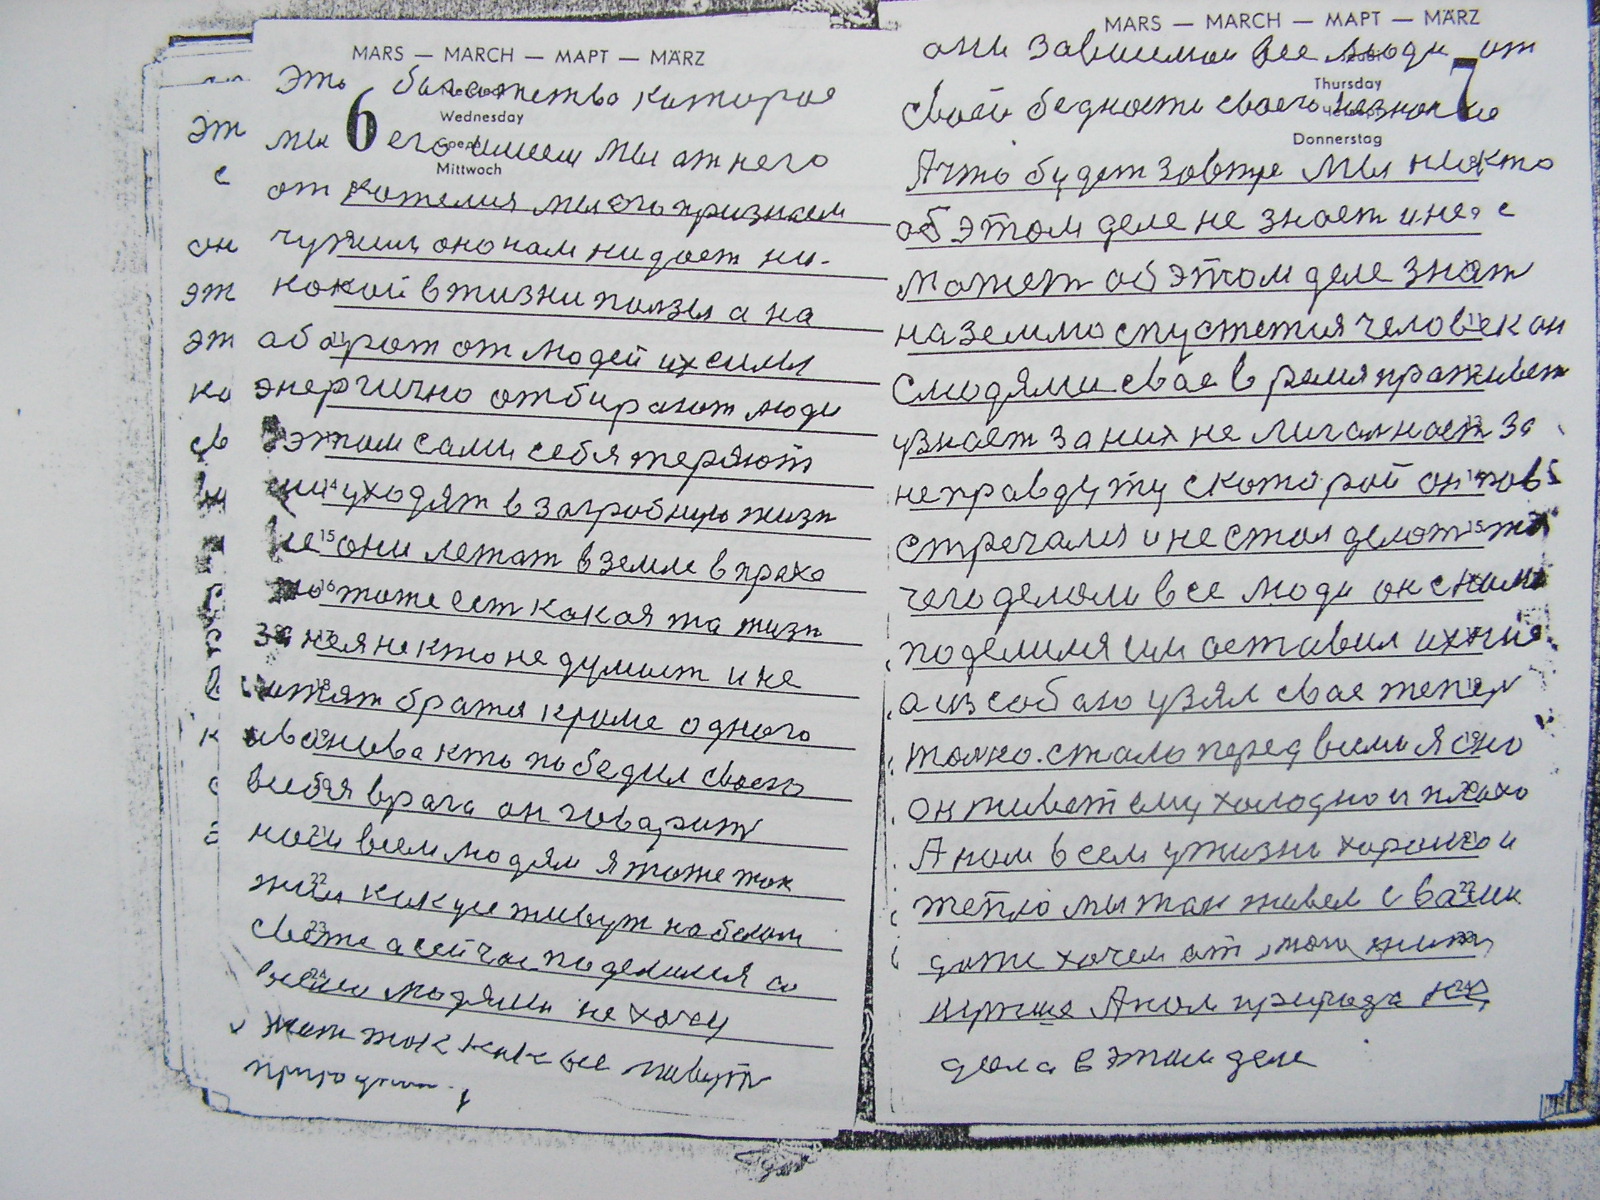 MARS — MARCH — МАРТ — MÄRZ
Это богатство которое
6
Wednesday
мы его имеем мы от него
Mittwoch
от мы его признаем
чужим оно нам ни дает ни-
какой в жизни ползы а на
аборот от людей их силы
энергично отбирают люди
этом сами себя теряют
и уходят в загробную жизн
не они лежат в земле в прахе
тоже ест какая та жизн
за нея некто не думает и не
братя кроме одного
иванова кто победил своего
в себя врага он говарит
нам всем людям я тоже так
жил как уси живут на белом
свете а сейчас поделился со
всеми людями не хочу
жит так как все живут
природы
MARS — MARCH — МАРТ — MÄRZ
они зависимаи все люди от
7
Thursday
Donnerstag
своей бедности своего незнание
А что будет завтре мы никто
об этом деле не знает и не
может об этом деле знат
на землю спустетия человек он
с людями свае время праживет
узнает за них не лигалнаст за
неправду ту с которой он пов
стречался и не стал делат то
чего делали все люди он с ними
поделился им оставил их
а из собою узял свае тепер
толко. стало перед всеми ясно
он живет ему холодно и плохо
А нам всем у жизни харошо и
тепло мы так живем с вами
даже хочем от этого жит
лучше А нам природа не
дала в этом деле